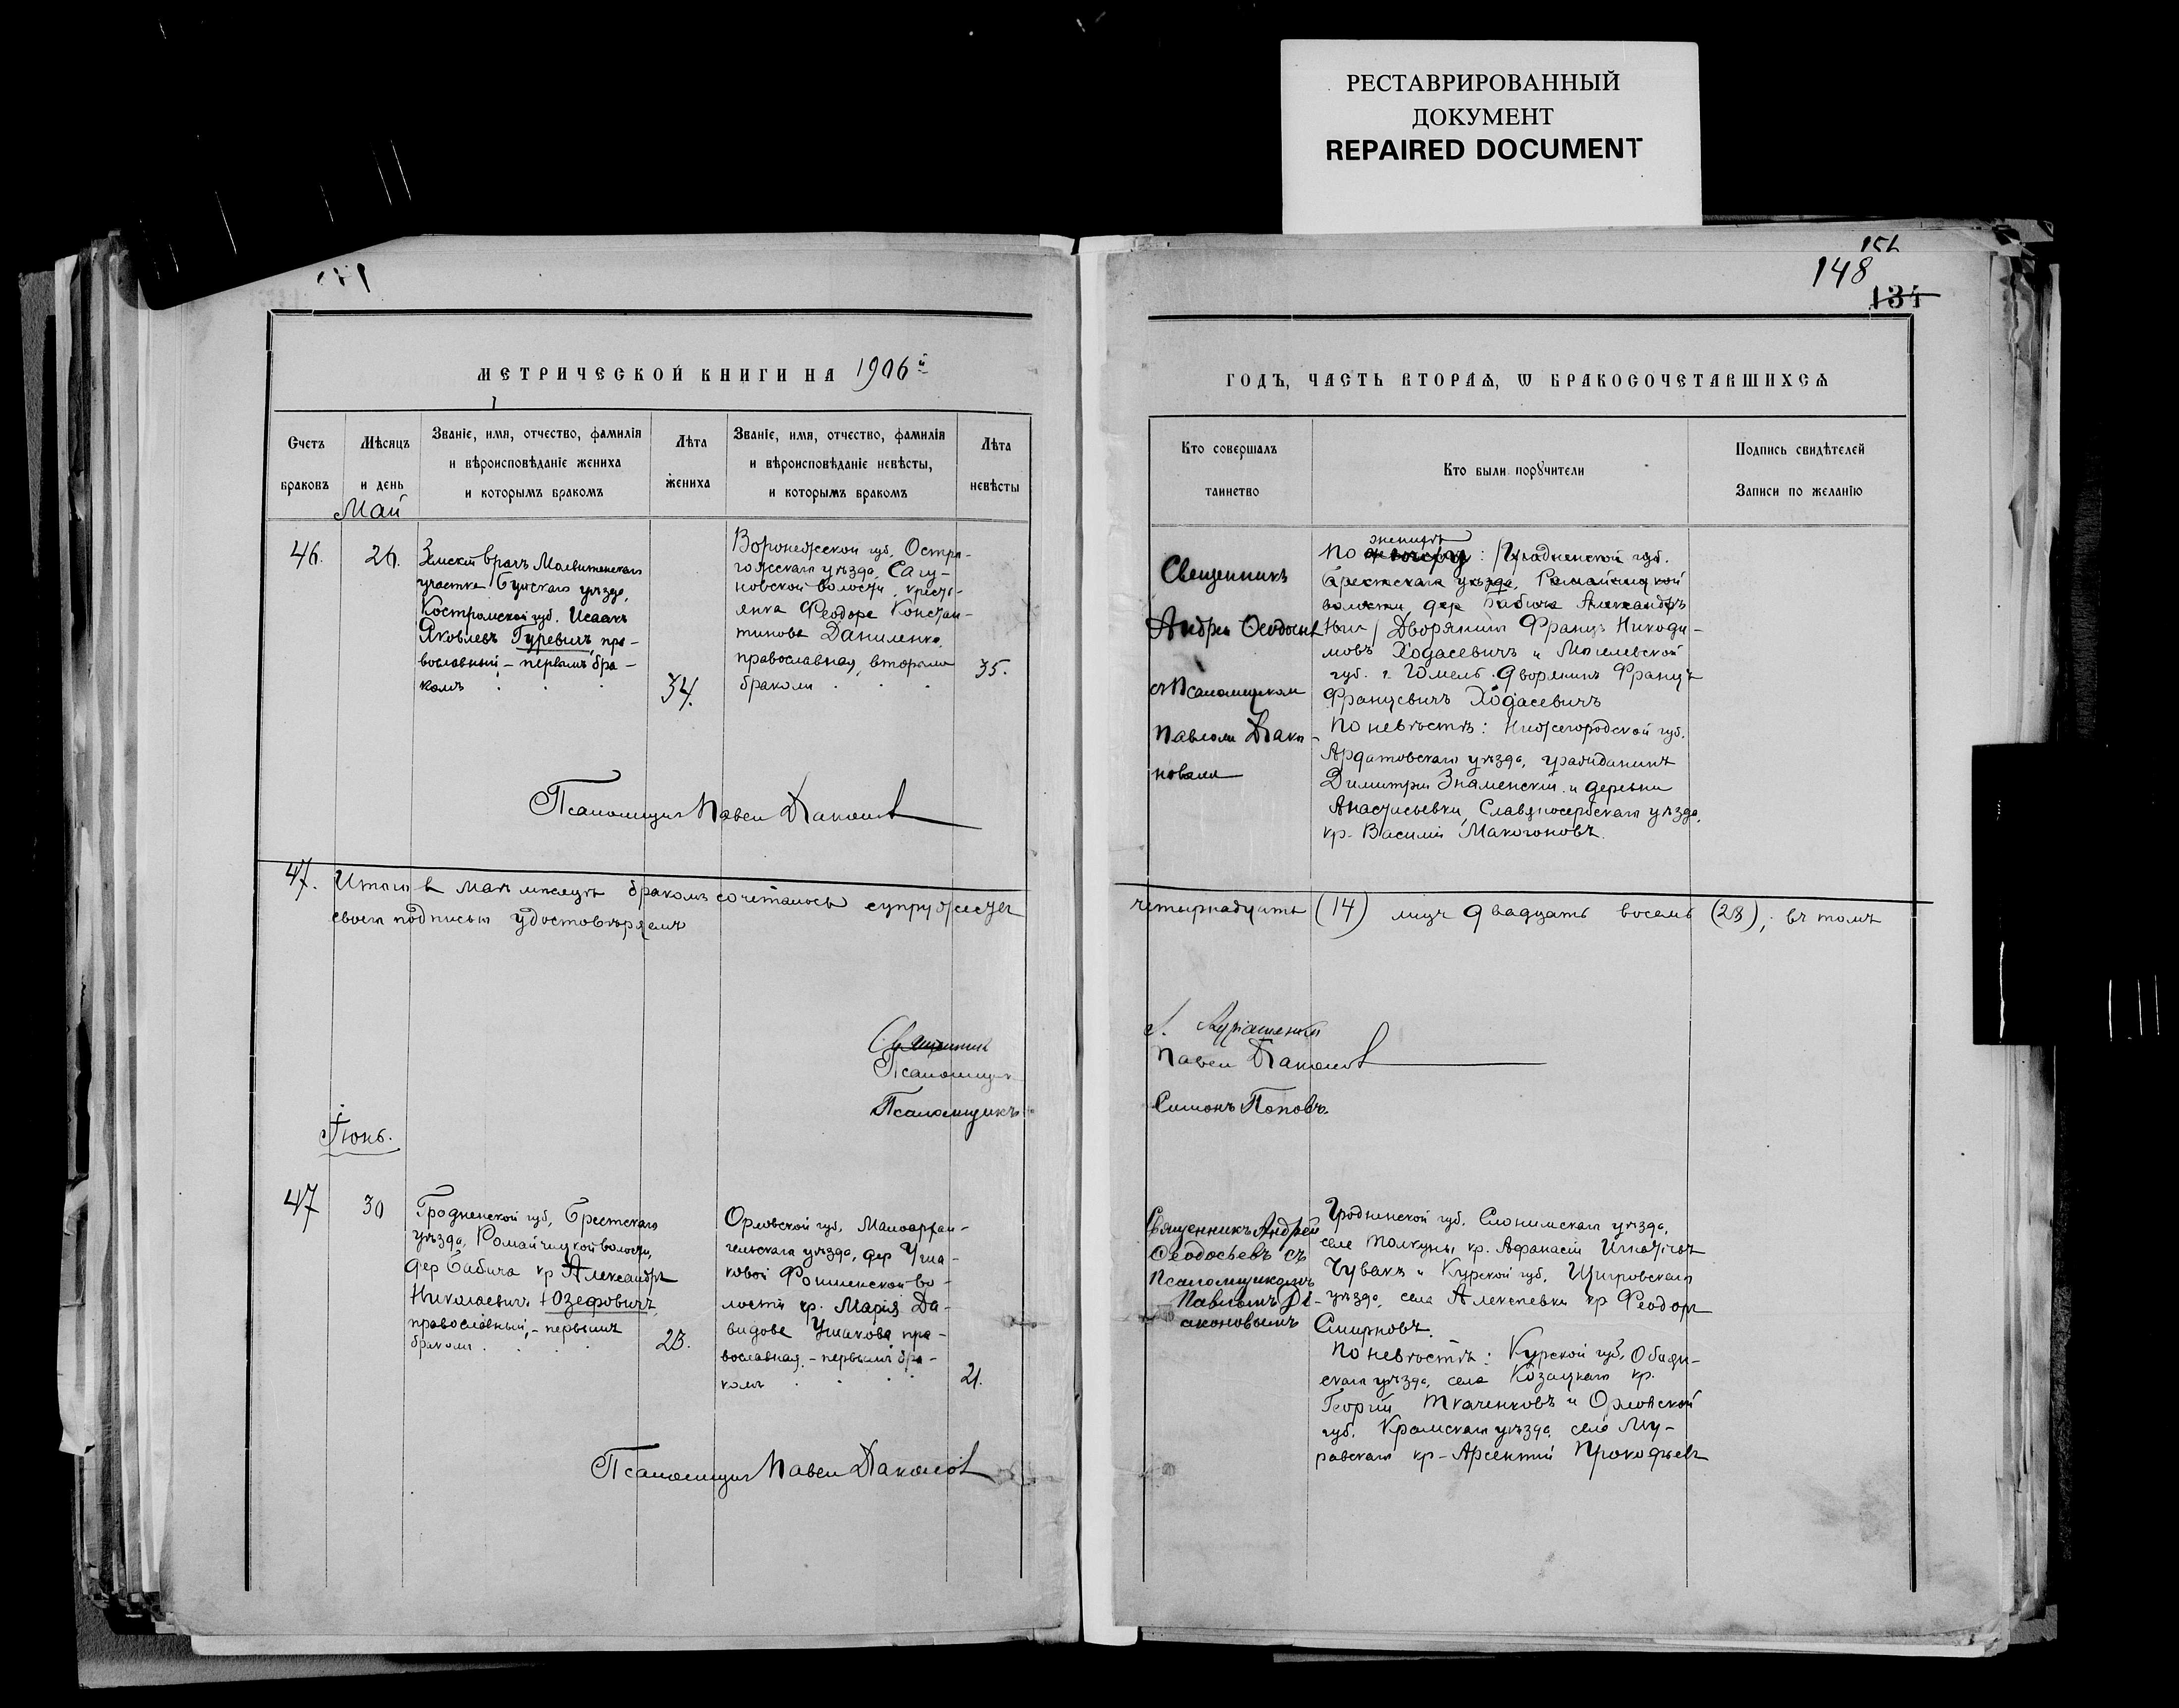 РЕСТАВРИРОВАННЫЙ
ДОКУМЕНТ
REPAIRED DOCUMENT
148
134
МЕТРИЧЕСКОЙ КНИГИ НА 1906й
Счетъ
браковъ
Мѣсяцъ
и день
Званіе, имя, отчество, фамилія
и вѣроисповѣданіе жениха
и которымъ бракомъ
Лѣта
жениха
Званіе, имя, отчество, фамилія
и вѣроисповѣданіе невѣсты,
и которымъ бракомъ
Лѣта
невѣсты
Май
46.
26.
Земскій врачъ
участка Буйскаго уѣзда,
Костромской губ. Исаакъ
Яковлевъ Гуревичъ, пра-
вославный, - первымъ бра-
комъ
34.
Воронежской губ. Остро-
гожскаго уѣзда, Сагу-
новской волости, кресть-
янка Феодора Констан-
тинова Даниленко,
православная, вторымъ
бракомъ
35.
Псаломщикъ Павелъ Дьяконовъ
47. Итого въ маѣ мѣсяцѣ бракомъ сочеталось супружествъ
своею подписью удостовѣряемъ
Священникъ
Псаломщикъ
Псаломщикъ
Іюнь.
47
30
Гродненской губ, Брестскаго
уѣзда, Ромайчицкой волости,
дер Бабича кр Александръ
Николаевичъ Юзефовичъ,
православный, - первымъ
бракомъ
23.
Орловской губ, Малоархан-
гельскаго уѣзда, дер Уша-
ковой Фошненской во-
лости кр. Марія Да-
видова Ушакова пра-
вославная, - первымъ бра-
комъ
21.
Псаломщикъ Павелъ Дьяконовъ
ГОДЪ, ЧАСТЬ ВТОРАЯ, Ѡ БРАКОСОЧЕТАВШИХСЯ
Кто совершалъ
таинство
Кто были поручители
Подпись свидѣтелей
Записи по желанію
Священникъ
Андрей Феодосьевъ
съ Псаломщикомъ
Павломъ Дьяко-
новымъ
жениху
По : Гродненской губ.
Брестскаго уѣзда, Ромайчицкой
волости, дер Бабича Александръ
Дворянинъ Францъ Никоди-
мовъ Ходасевичъ и Могилевской
губ. г. Гомель дворянинъ Францъ
Францевичъ Ходасевичъ
По невѣстѣ: Нижегородской губ.
Ардатовскаго уѣзда, гражданинъ
Димитрій Знаменскій и деревни
Анастасьевки, Славяносербскаго уѣзда,
кр. Василій Макогоновъ.
четырнадцать (14) лицъ двадцать восемь (28), въ томъ
Павелъ Дьяконовъ
Симонъ Поповъ.
Священникъ Андрей
Феодосьевъ съ
Псаломщикомъ
Павломъ Ді-
аконовымъ
Гродненской губ. Слонимскаго уѣзда,
села Толкуны кр. Афанасій Игнатьевъ
Чувакъ и Курской губ, Щигровскаго
уѣзда, села Алексеевки кр Феодоръ
Смирновъ.
По невѣстѣ: Курской губ, Обоян-
скаго уѣзда, села Козацкаго кр.
Георгій Ткаченковъ и Орловской
губ. Кромскаго уѣзда, села Му-
равскаго кр - Арсентій Прокофьевъ